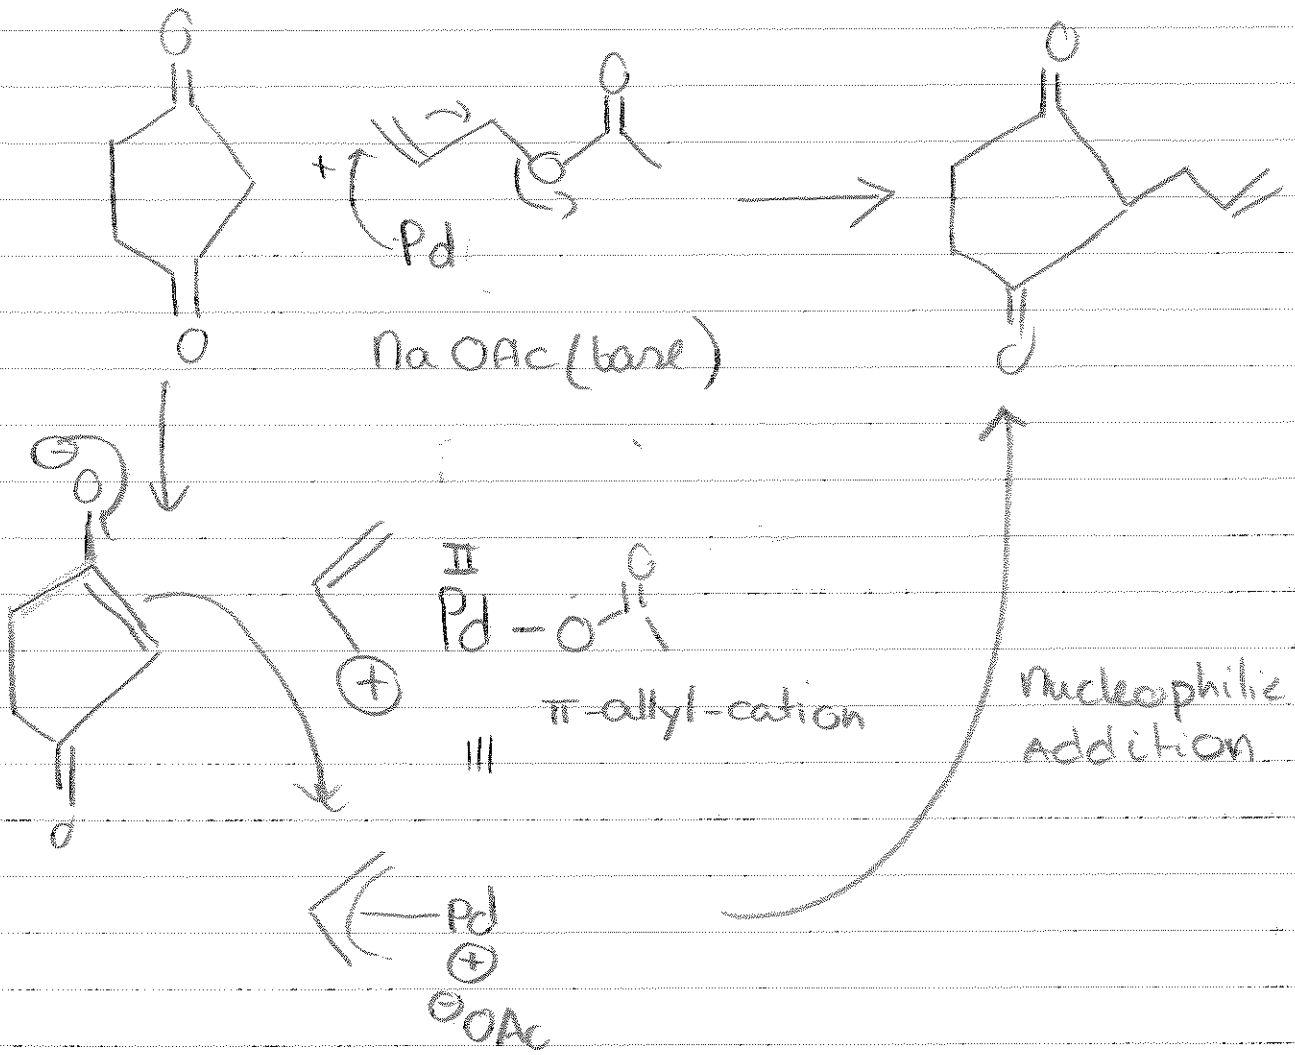 O
O
O
+
Pd
O
O
NaOAc (base)
O
⊖
O
II
O
Pd - O
⊕
π-allyl-cation
Nucleophilic
Addition
|||
O
Pd
⊕
⊖OAc